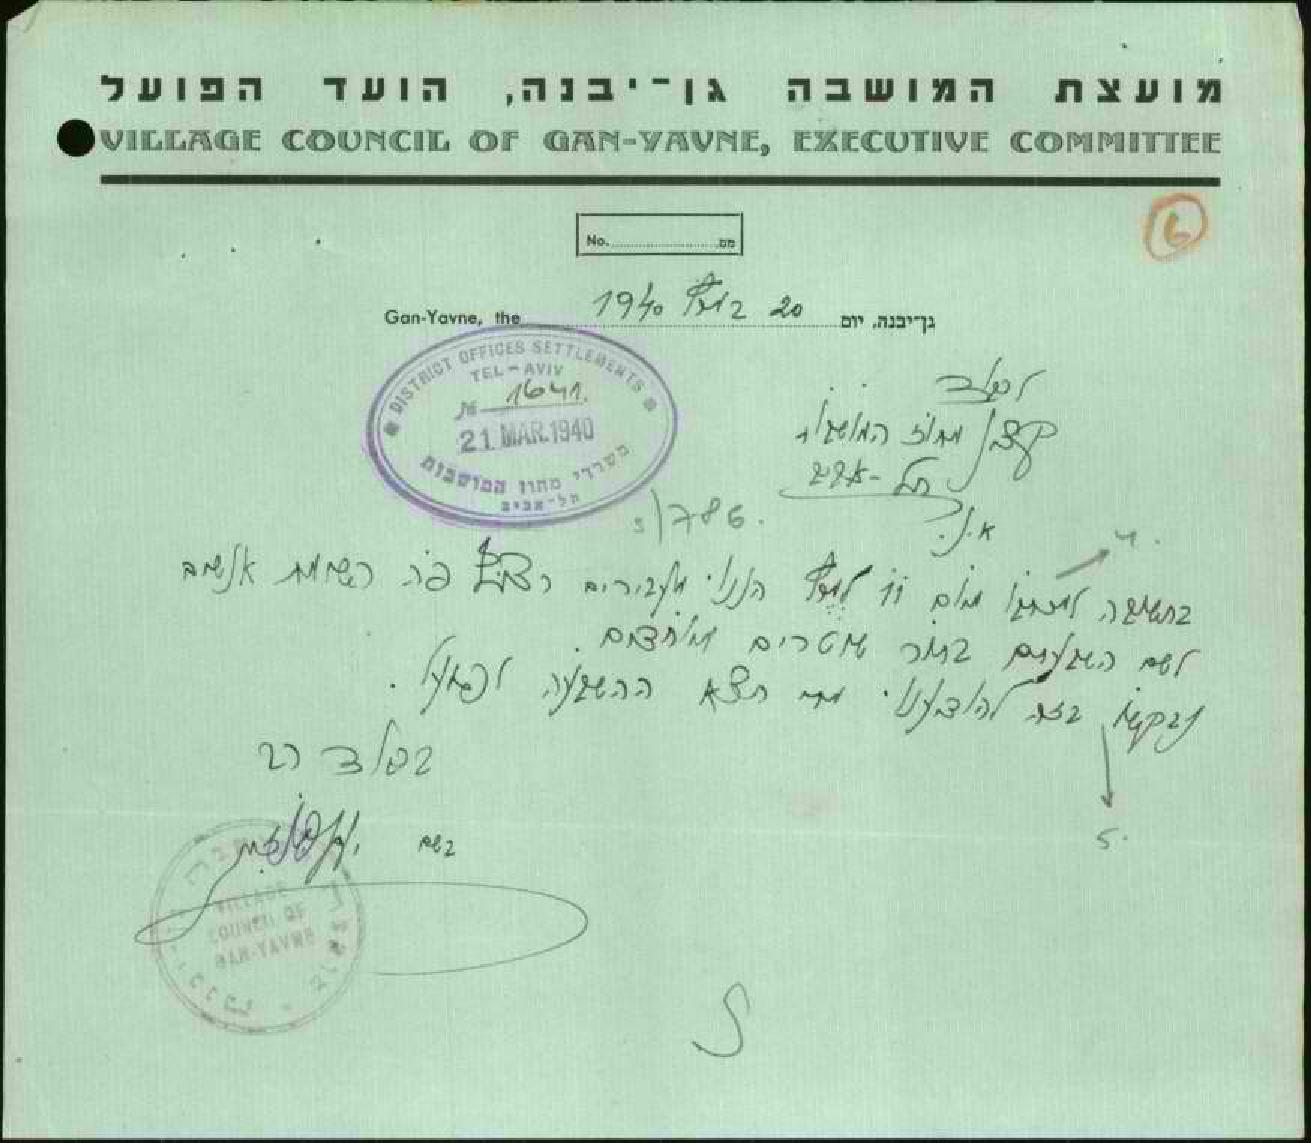 מועצת המושבה גן־יבנה, הועד הפועל
VILLAGE COUNCIL OF GAN-YAVNE, EXECUTIVE COMMITTEE
6
No. מס.
Gan-Yavne, the 20 במרץ 1940 גן־יבנה, יום
DISTRICT OFFICES SETTLEMENTS
TEL-AVIV
№ 1641.
21 MAR. 1940
משרדי מחוז המושבות
תל-אביב
לכבוד
קצין מחוז המושבות
תל-אביב
א.נ.
s/786.
4.
בתשובה למכתבו מיום 17 למרץ הננו מעבירים רצוף פה רשימת אנשים
לשם השבעתם בתור שוטרים מיוחדים.
נבקשו בזה להודיענו מתי תצא ההשבעה לפועל.
5.
בכבוד רב
בשם
VILLAGE
COUNCIL OF
GAN-YAVNE